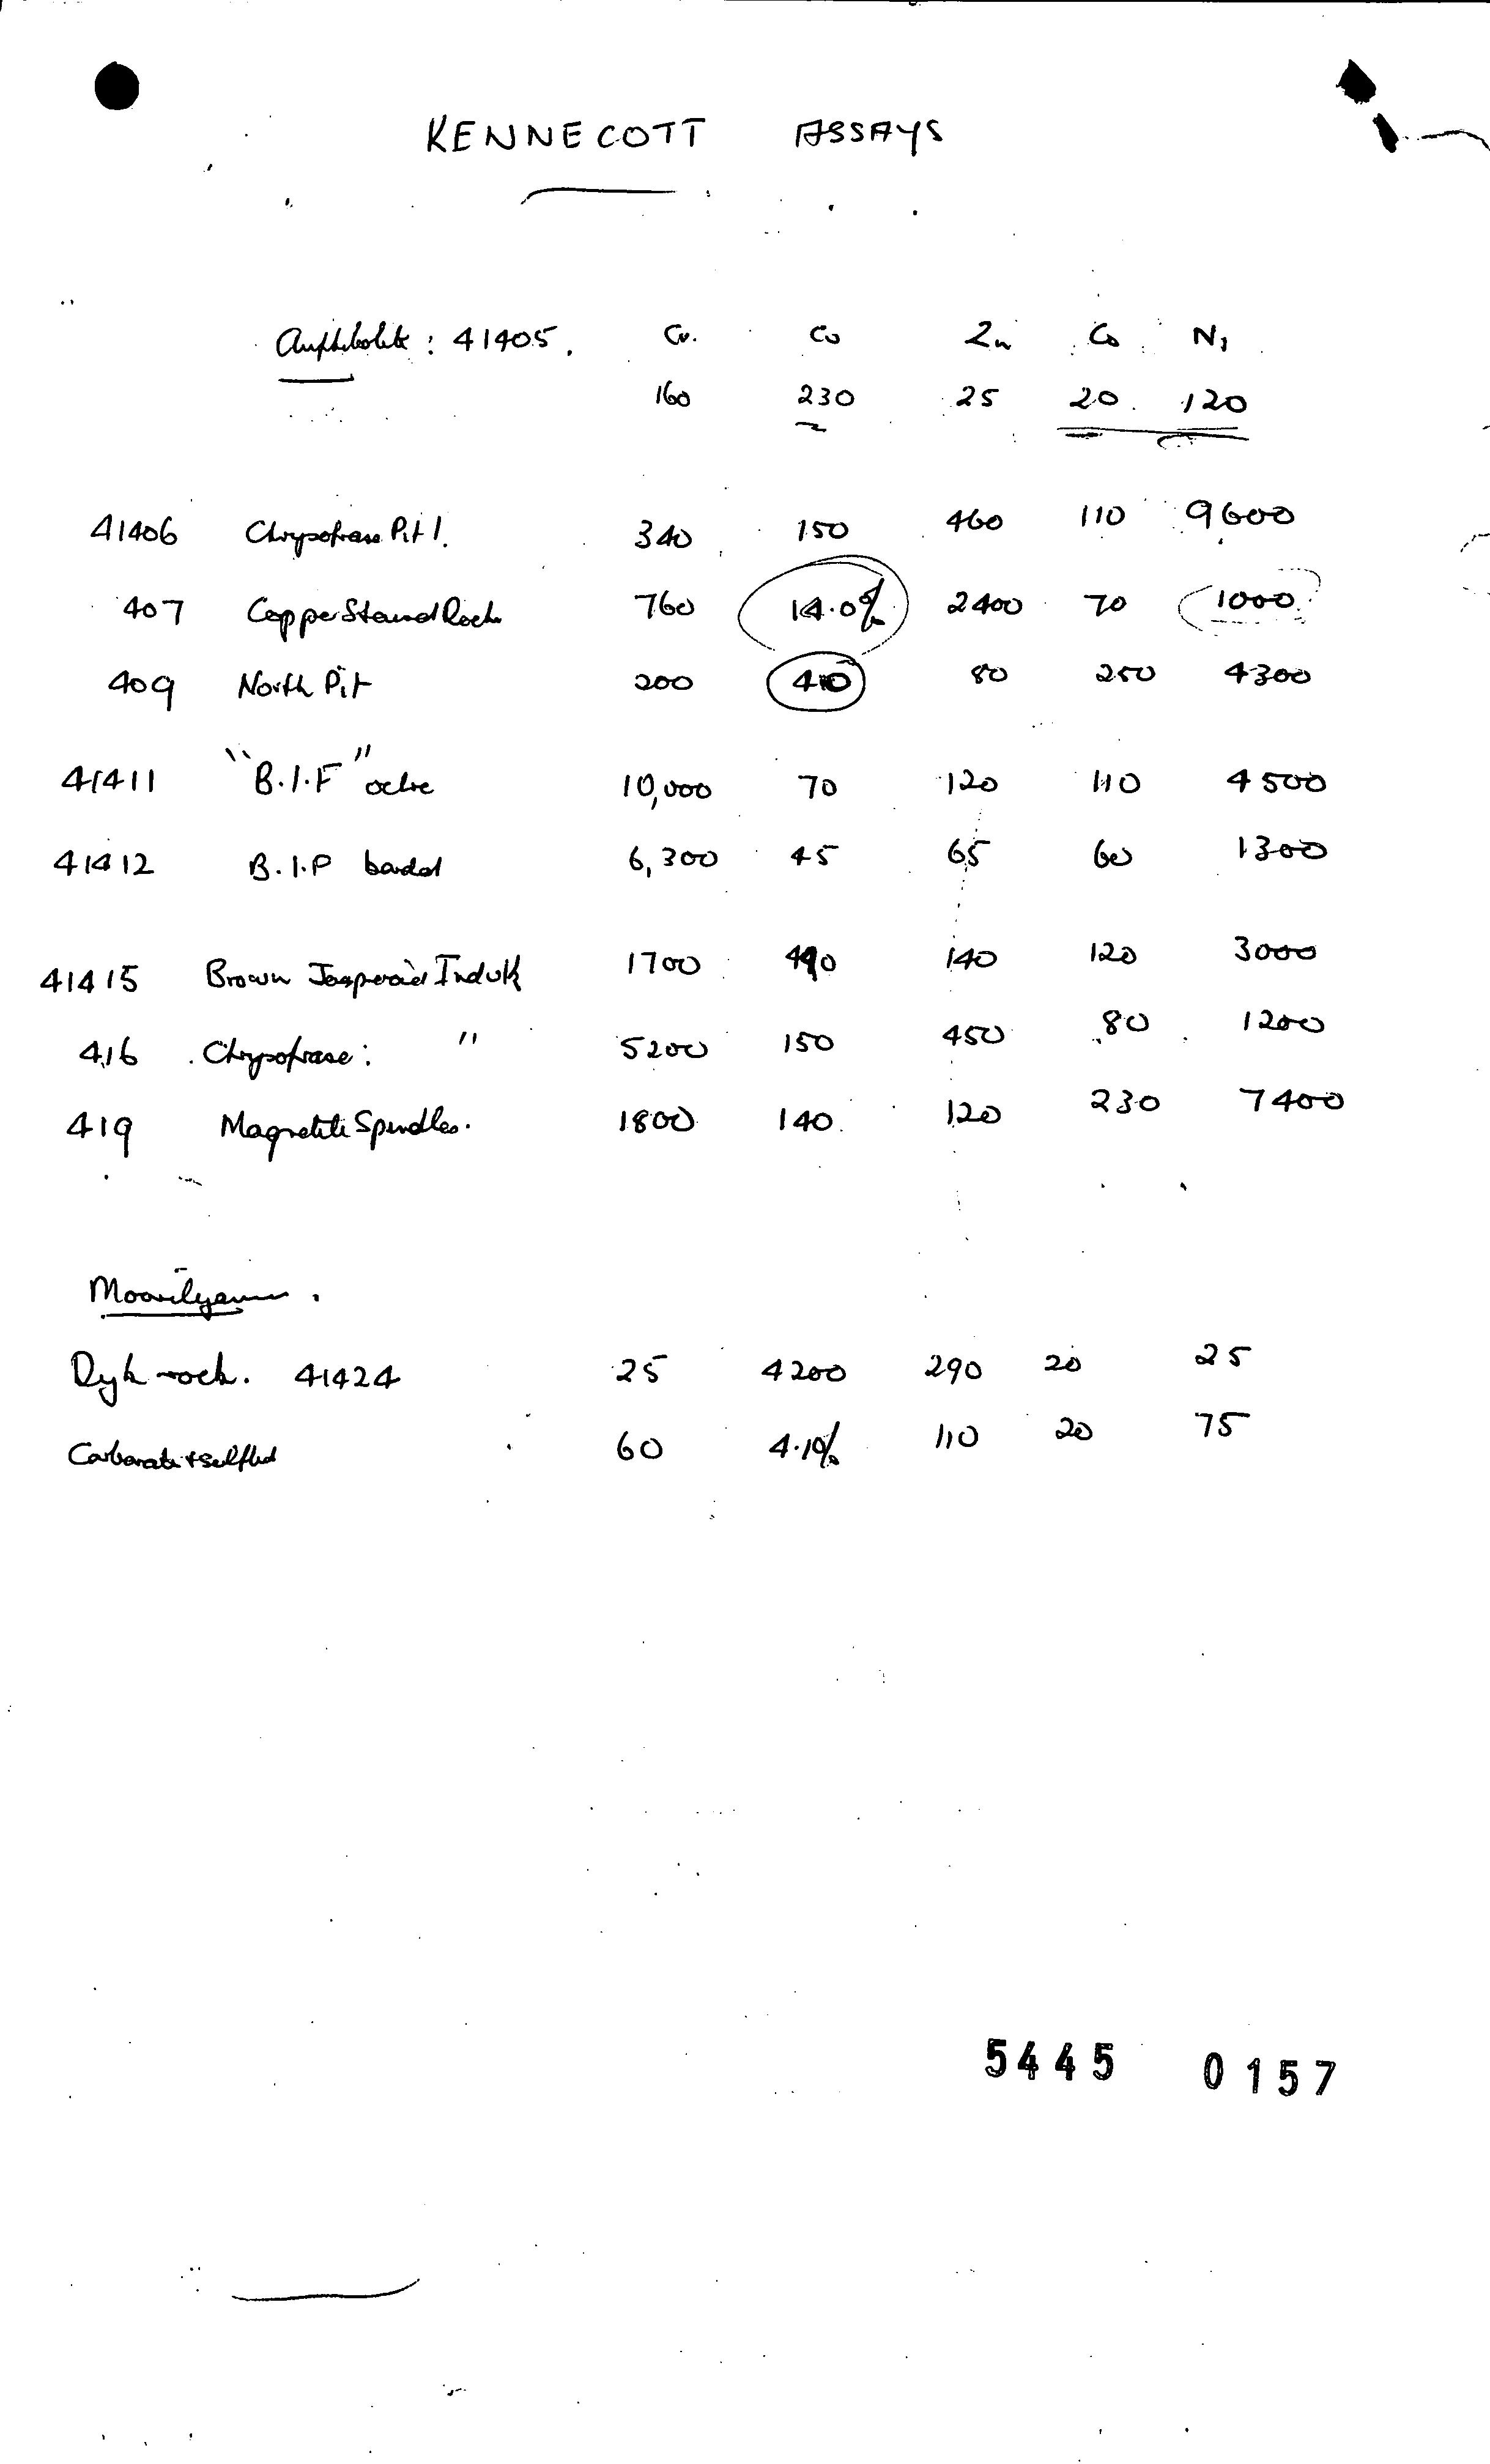 KENNECOTT ASSAYS
Amphibolite: 41405. Cr. Cu Zn Co Ni
160 230 25 20 120
41406 Chrysoprase Pit 1. 340 150 460 110 9600
407 Copper Stained Rock 760 14.0% 2400 70 1000
409 North Pit 200 410 80 250 4300
41411 "B.I.F" ochre 10,000 70 120 110 4500
41412 B.I.F banded 6,300 45 65 60 1300
41415 Brown Jasperoid 1700 140 120 3000
416 Chrysoprase: " 5200 150 450 80 1200
419 Magnetite Spindles. 1800 140 120 230 7400
Moorilyanna.
Dyke rock. 41424 25 4200 290 20 25
Carbonate + sulfied 60 4.1% 110 20 75
5445 0157